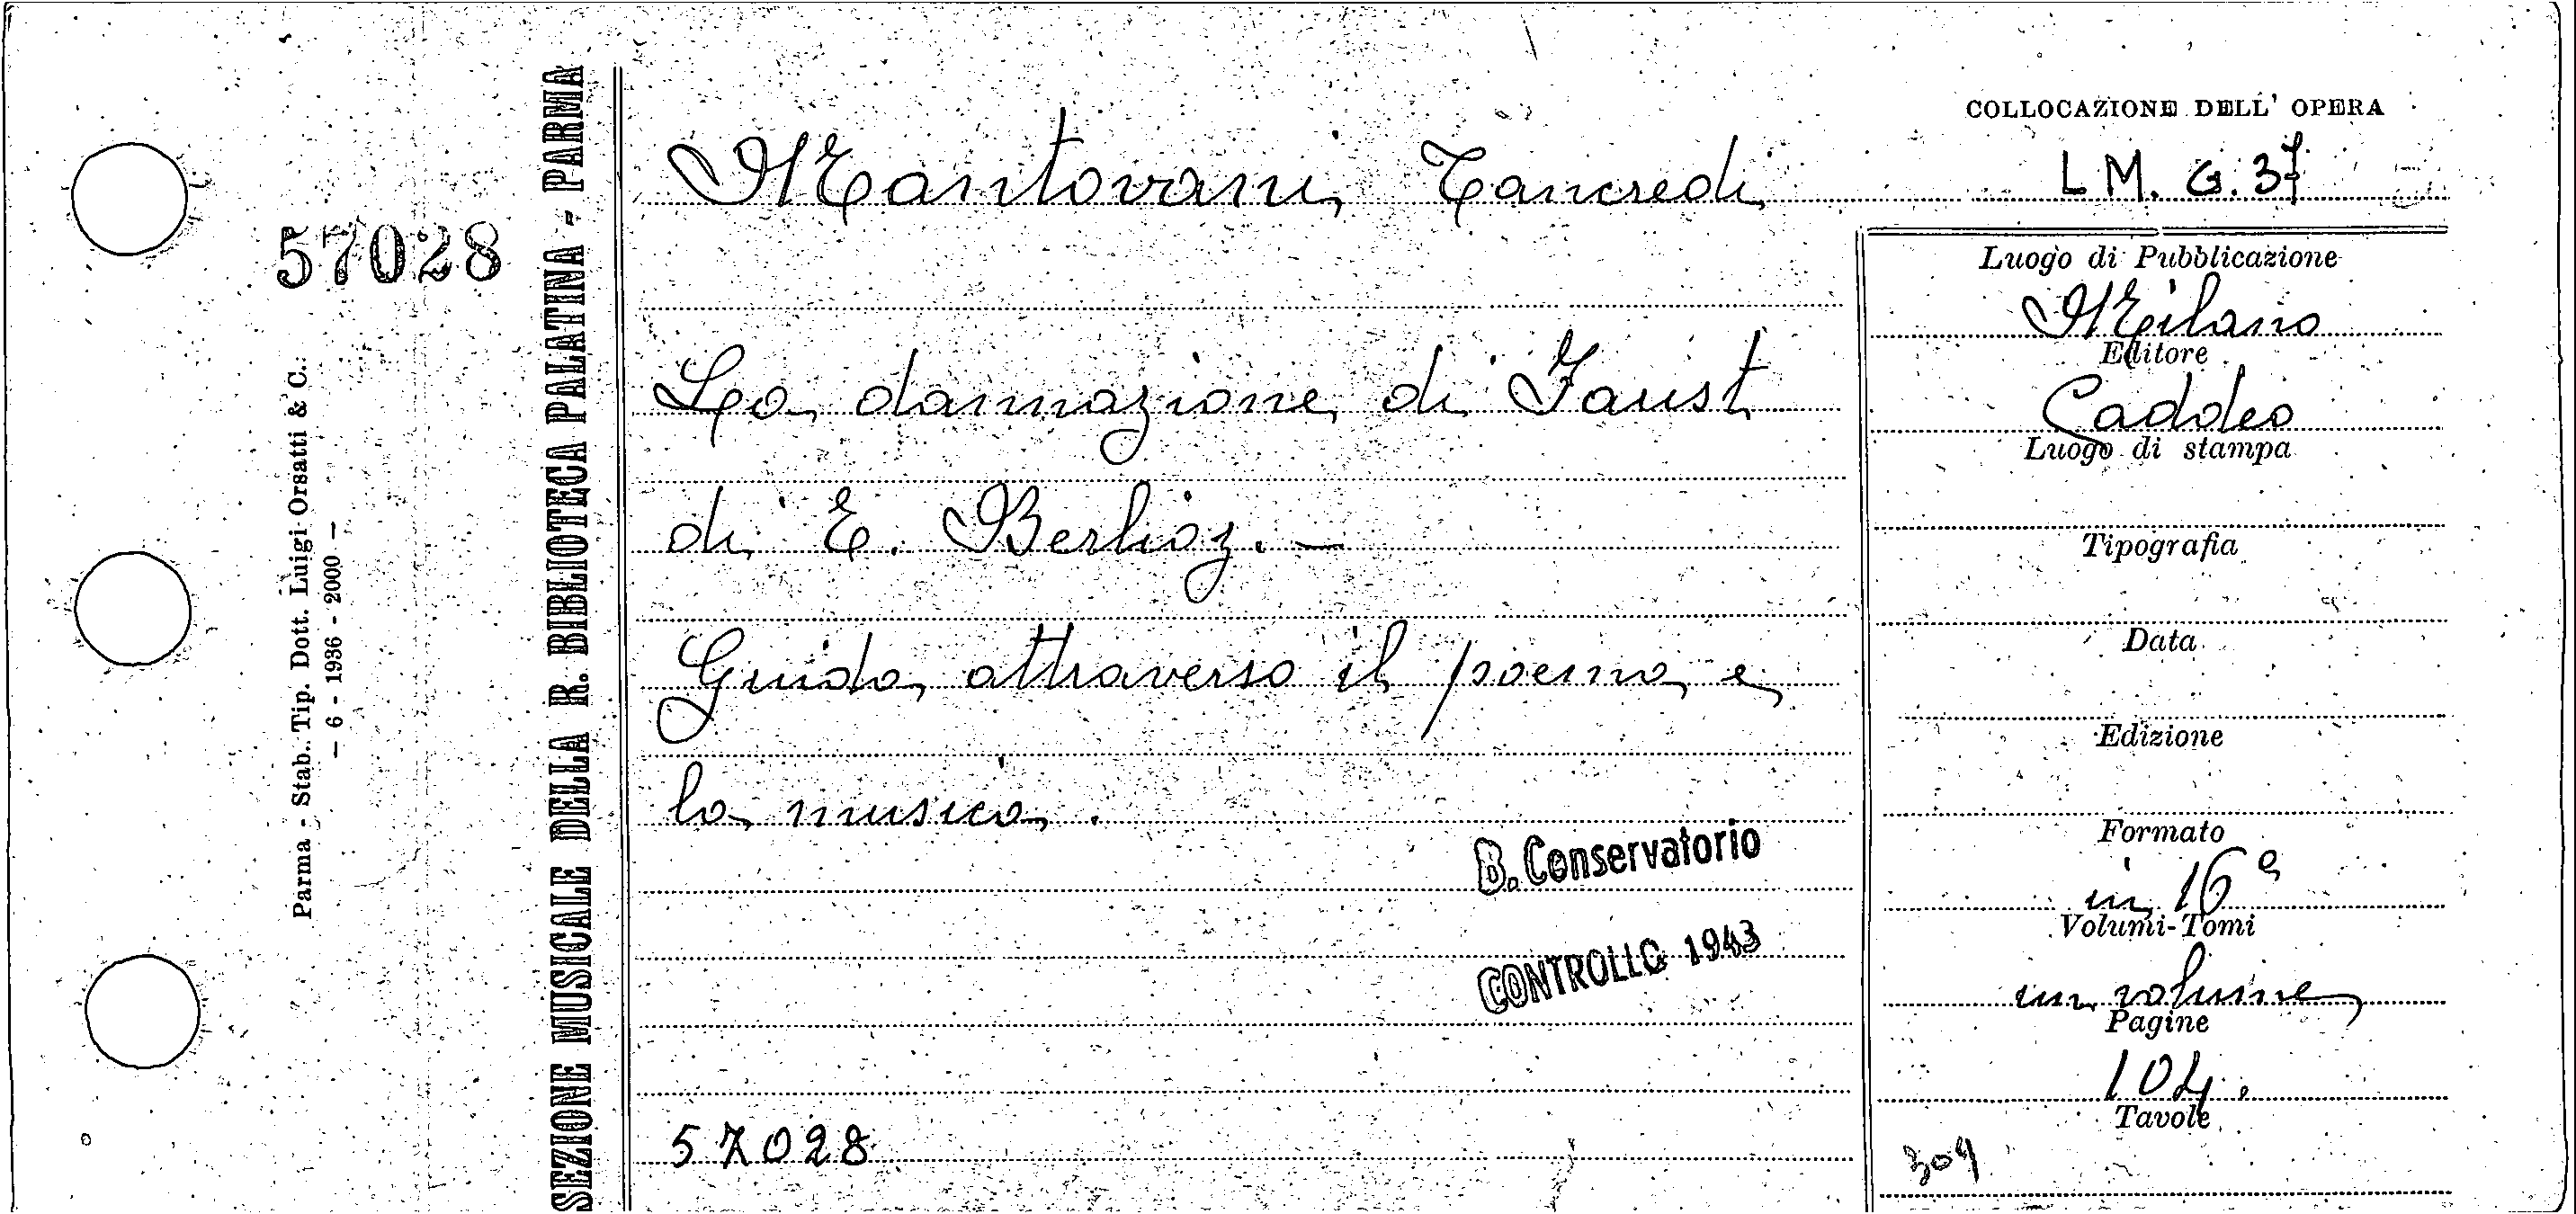 57028
Parma - Stab. Tip. Dott. Luigi Orsatti & C.
- 6 - 1936 - 2000 -
SEZIONE MUSICALE DELLA R. BIBLIOTECA PALATINA - PARMA
Mantovani Tancredi
La dannazione di Faust
di E. Berlioz. -
Guida attraverso il poema e
la musica.
B. Conservatorio
CONTROLLO 1943
57028
COLLOCAZIONE DELL' OPERA
LM. G. 37
Luogo di Pubblicazione
Milano
Editore
Caddeo
Luogo di stampa
Tipografia
Data
Edizione
Formato
in 16°
Volumi-Tomi
un volume
Pagine
104.
Tavole
304